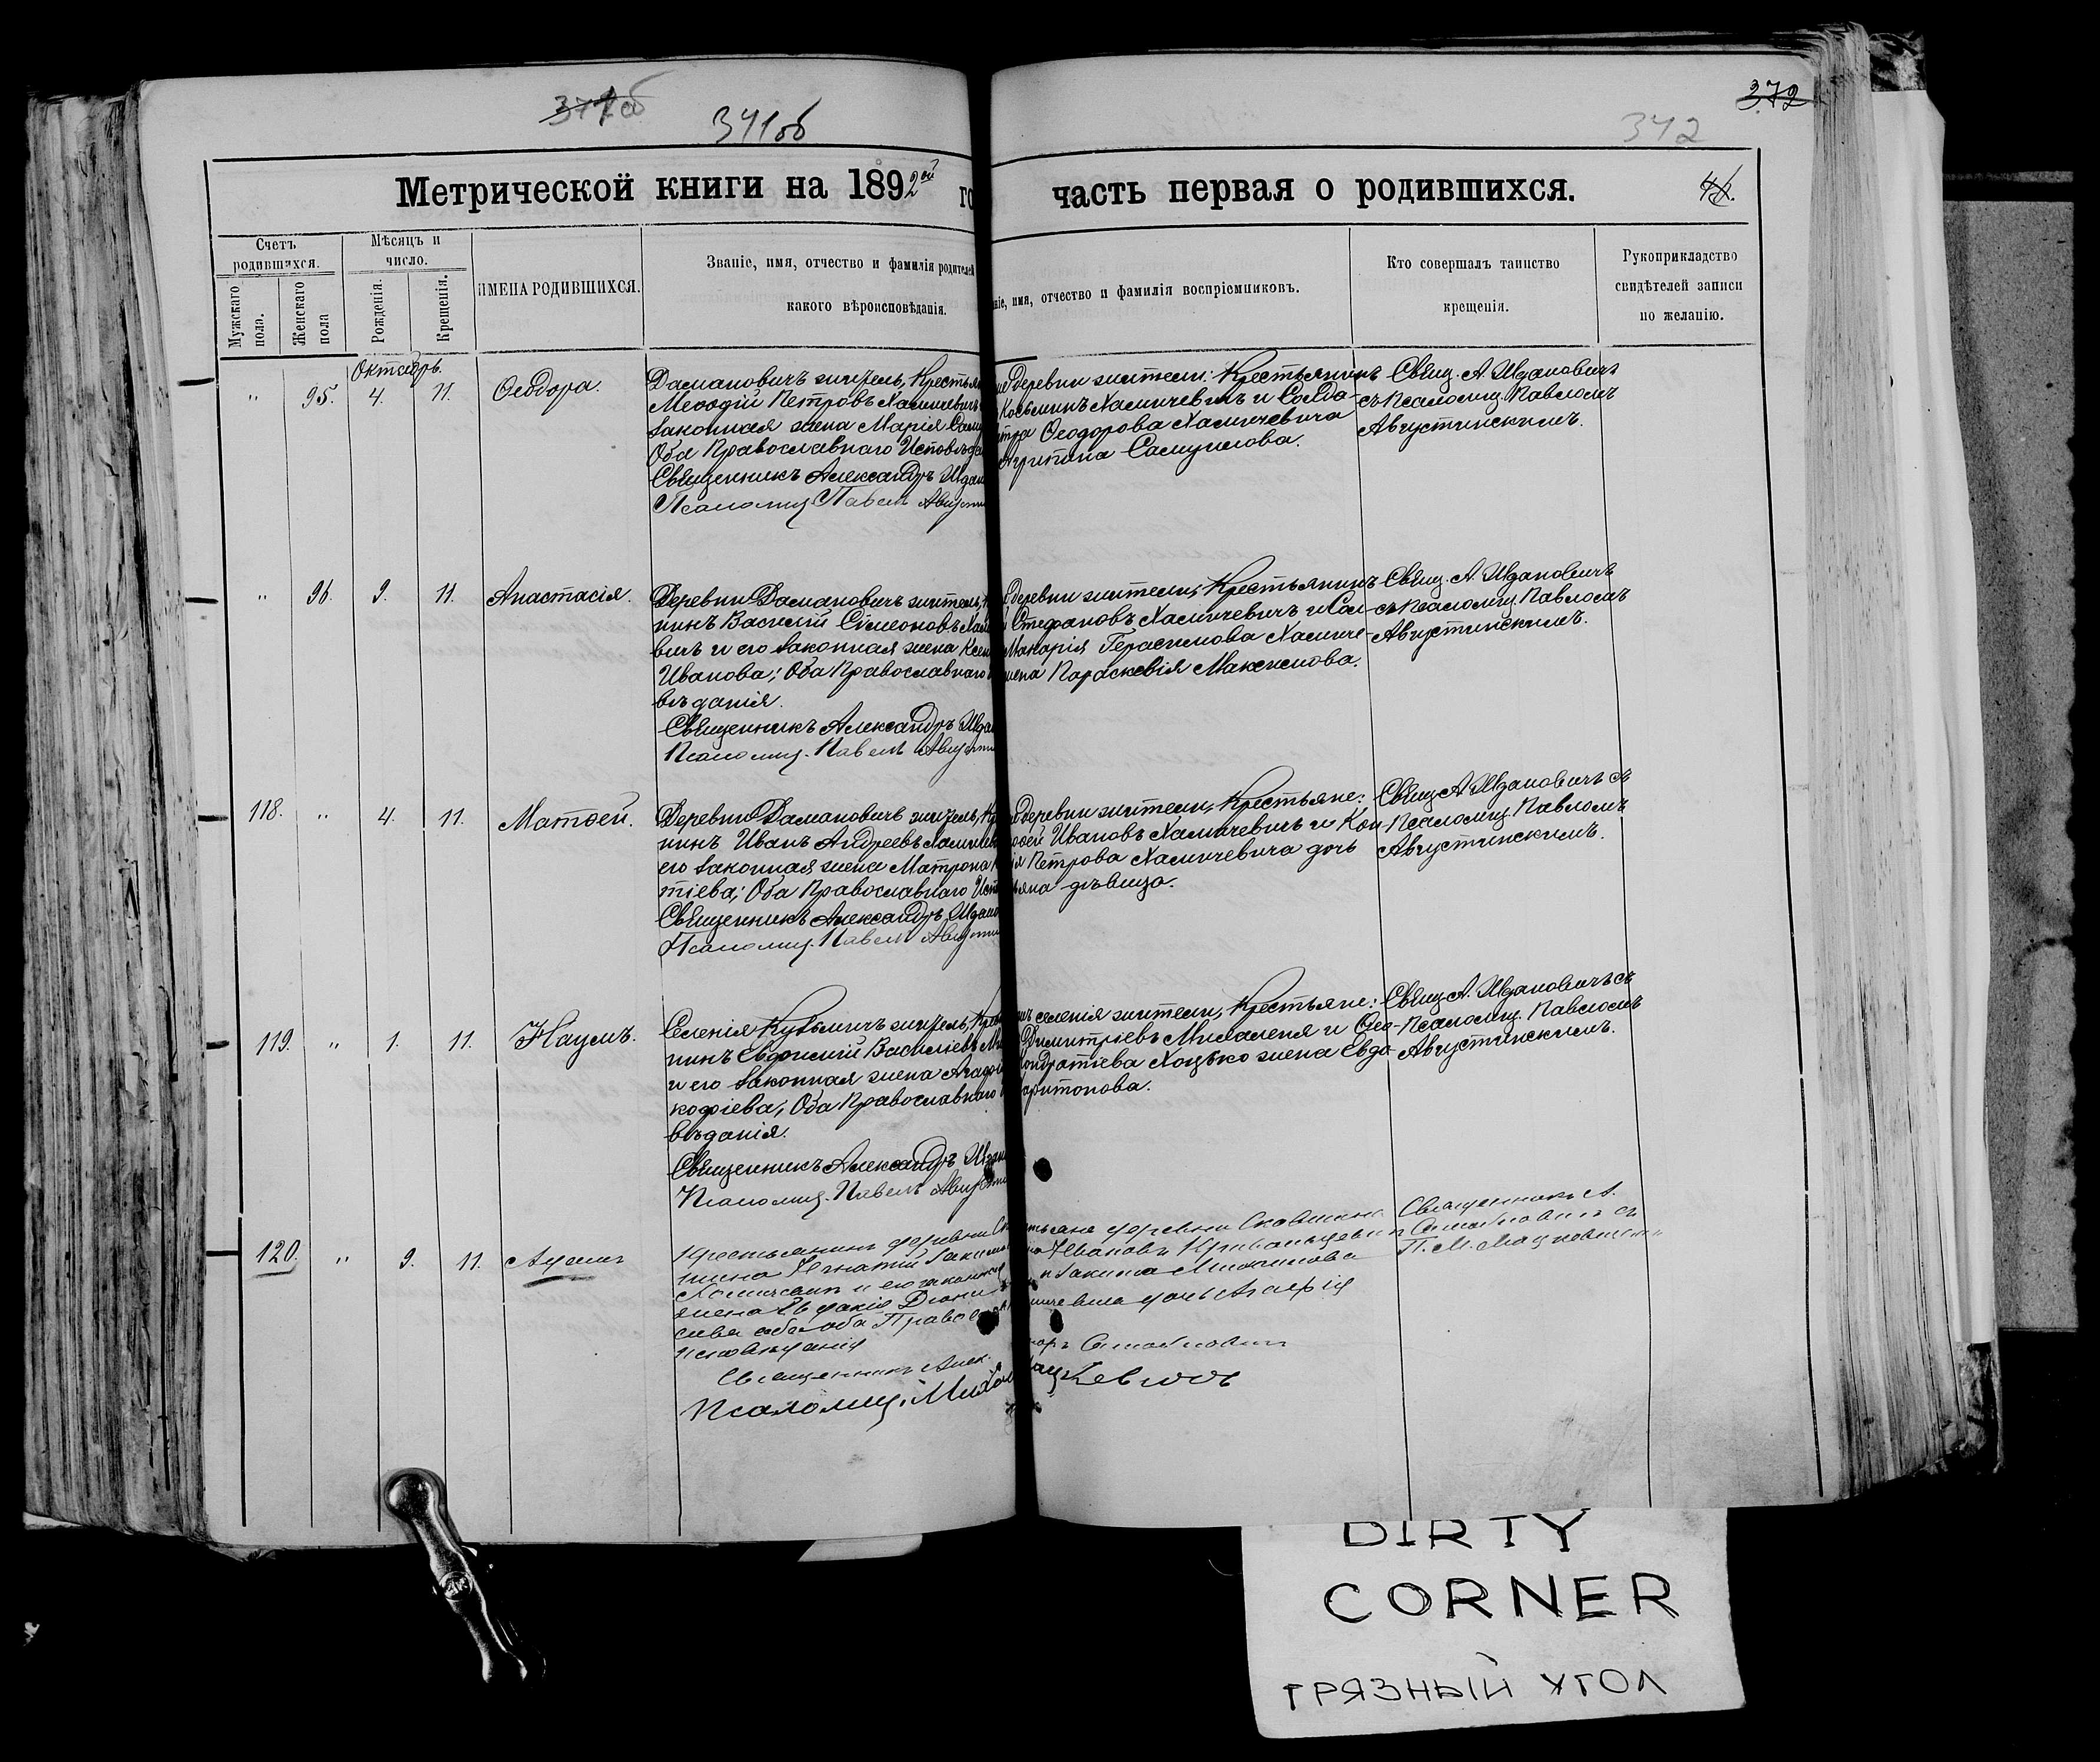 371об
341об
372
342
Метрической книги на 1892ой го
часть первая о родившихся.
Счетъ родившихся.
Мужскаго пола.
Женскаго пола
Мѣсяцъ и число.
Рожденія.
Крещенія.
ИМЕНА РОДИВШИХСЯ.
Званіе, имя, отчество и фамилія родителей
какого вѣроисповѣданія.
ніе, имя, отчество и фамилія воспріемниковъ.
Кто совершалъ таинство
крещенія.
Рукоприкладство
свидѣтелей записи
по желанію.
Октябрь.
" 95. 4. 11. Ѳеодора.
Даманович житель, Крестья
Меѳодій Петровъ Халичевичъ
законная жена Марія Сам
Оба Православнаго Исповѣда
Священникъ Александръ Ждан
Псаломщ. Павелъ Августи
деревни жители: Крестьянинъ
Косьминъ Халичевичъ и Солда-
Ѳеодорова Халичевича
Агрипина Самуилова.
Свящ. А. Ждановичъ
съ Псаломщ. Павломъ
Августинскимъ.
" 96. 9. 11. Анастасія.
Деревни Даманович житель,
нинъ Василій Сімеоновъ Хали
вичъ и его законная жена Ксен
Иванова; Оба Православнаго
вѣданія.
Священникъ Александръ Жда
Псаломщ. Павелъ Августи
деревни жители, Крестьянинъ
Стефановъ Халичевичъ и Сол-
Макарія Герасимова Халиче-
жена Параскевія Максимова.
Свящ. А. Ждановичъ
съ Псаломщ. Павломъ
Августинскимъ.
118. " 4. 11. Матѳей.
Деревни Даманович житель, Кр
нинъ Иванъ Андреевъ Халичев
его законная жена Матрона
тіева; Оба Православнаго Исп
Священникъ Александръ Ждано
Псаломщ. Павелъ Августи
деревни жители, Крестьяне:
ѳей Ивановъ Халичевичъ и Кон
ія Петрова Халичевича дочь
яна дѣвица.
Свящ. А. Ждановичъ съ
Псаломщ. Павломъ
Августинскимъ.
119. " 1. 11. Наумъ.
Селенія Кузьмичъ житель, Крес
нинъ Евдокимій Василіевъ Ми
и его законная жена Агафі
кофіева; Оба Православнаго
вѣданія.
Священникъ Александръ Ждан
Псаломщ. Павелъ Августи
селенія жители, Крестьяне:
Димитріевъ Михаленя и Ѳео-
Кондратіева Хоцько жена Евдо-
Харитонова.
Свящ. А. Ждановичъ съ
Псаломщ. Павломъ
Августинскимъ.
120. " 9. 11. Адамъ
Крестьянинъ деревни Ск
Игнатій Іакимо
и его законная
жена Евдокія Діони
оба Правосла
исповѣданія
Священникъ Алек.
Псаломщ. Миха
деревни
Ивановъ
Іакима
дочь Агафія
Священникъ А.
DIRTY
CORNER
ГРЯЗНЫЙ УГОЛ